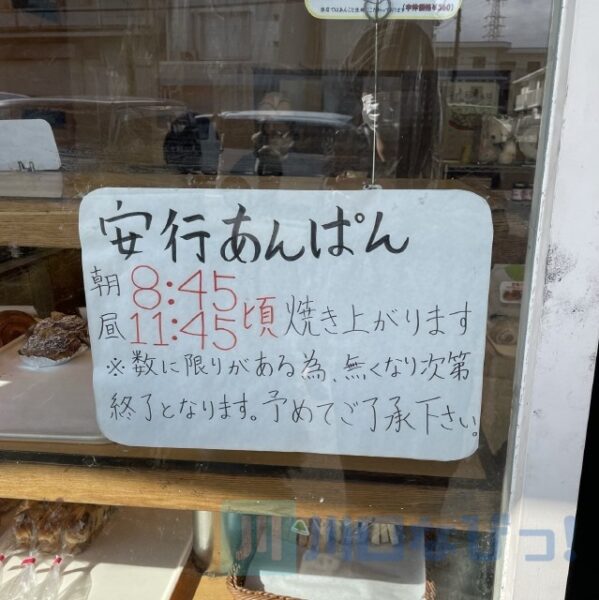 安行あんぱん
朝 8:45
昼 11:45 頃 焼き上がります
※数に限りがある為、無くなり次第
終了となります。予めてご了承下さい。
川口なびっ!